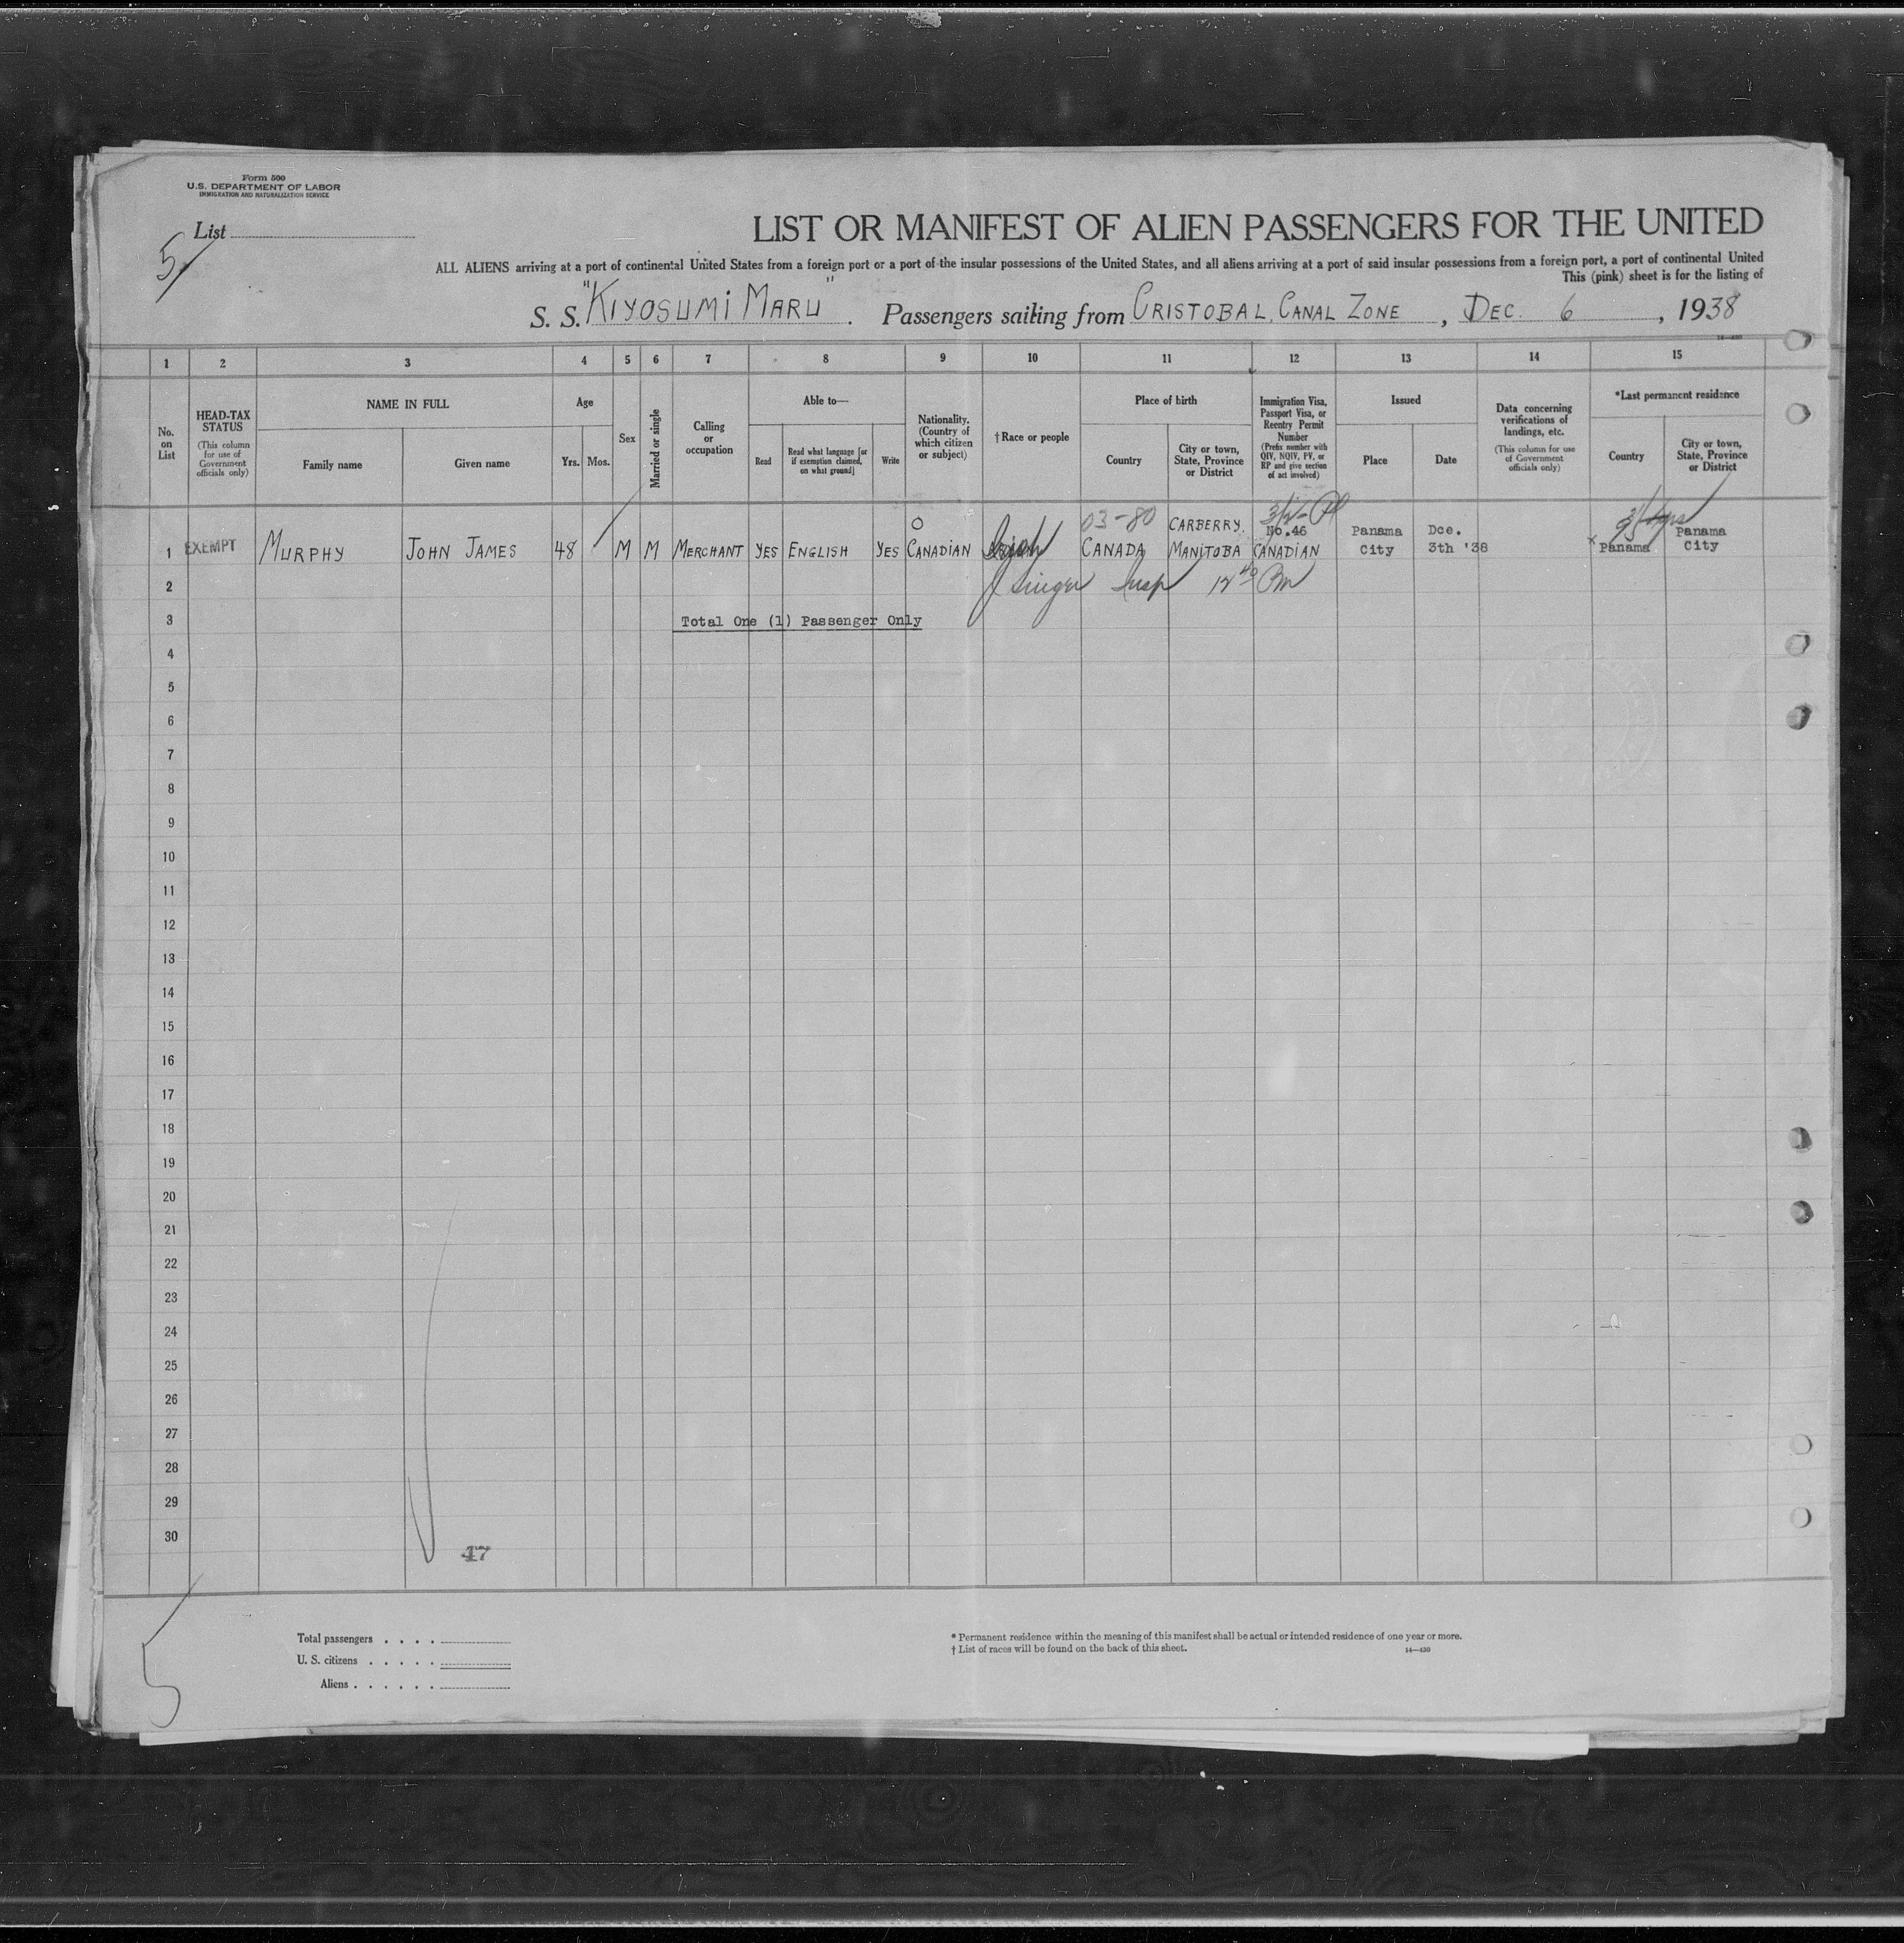 Form 500
U.S. DEPARTMENT OF LABOR
IMMIGRATION AND NATURALIZATION SERVICE
List
5
LIST OR MANIFEST OF ALIEN PASSENGERS FOR THE UNITED
ALL ALIENS arriving at a port of continental United States from a foreign port or a port of the insular possessions of the United States, and all aliens arriving at a port of said insular possessions from a foreign port, a port of continental United
This (pink) sheet is for the listing of
S. S. "KIYOSUMI MARU". Passengers sailing from CRISTOBAL, CANAL ZONE, DEC. 6, 1938
14—430
1 2 3 4 5 6 7 8 9 10 11 12 13 14 15
No. on List
HEAD-TAX STATUS
(This column for use of Government officials only)
NAME IN FULL
Family name
Given name
Age
Yrs. Mos.
Sex
Married or single
Calling or occupation
Able to—
Read
Read what language [or if exemption claimed, on what ground]
Write
Nationality. (Country of which citizen or subject)
†Race or people
Place of birth
Country
City or town, State, Province or District
Immigration Visa, Passport Visa, or Reentry Permit Number
(Prefix number with QIV, NQIV, PV, or RP and give section of act involved)
Issued
Place
Date
Data concerning verifications of landings, etc.
(This column for use of Government officials only)
*Last permanent residence
Country
City or town, State, Province or District
03-80 CARBERRY, No.46 Panama Dce. Panama
1 EXEMPT MURPHY JOHN JAMES 48 M M MERCHANT YES ENGLISH YES CANADIAN Irish CANADA MANITOBA CANADIAN City 3th '38 x Panama City
2 Singer Insp 12 40 Pm
3 Total One (1) Passenger Only
4
5
6
7
8
9
10
11
12
13
14
15
16
17
18
19
20
21
22
23
24
25
26
27
28
29
30
47
5
Total passengers . . . .
U. S. citizens . . . . .
Aliens . . . . . .
* Permanent residence within the meaning of this manifest shall be actual or intended residence of one year or more.
† List of races will be found on the back of this sheet.
14—430